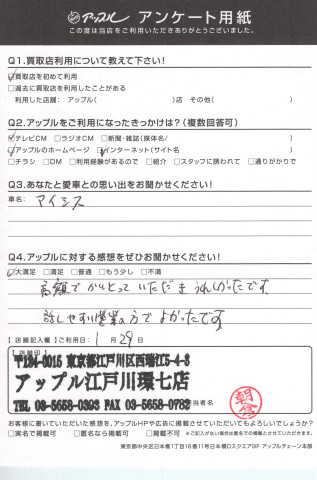 アップル アンケート用紙
この度は当店をご利用いただきありがとうございました。
Q1.買取店利用について教えて下さい!
☑買取店を初めて利用
□過去に買取店を利用したことがある
利用した店舗: アップル( )店 その他( )
Q2.アップルをご利用になったきっかけは?(複数回答可)
☑テレビCM □ラジオCM □新聞・雑誌(媒体名/ )
☑アップルのホームページ ☑インターネット(サイト名 )
□チラシ □DM □利用経験があるので □紹介 □スタッフに誘われて □通りがかりで
Q3.あなたと愛車との思い出をお聞かせください!
車名: アイシス
Q4.アップルに対する感想をぜひお聞かせください!
☑大満足 □満足 □普通 □もう少し □不満
高額でかいとっていただきうれしかったです。
話しやすい営業の方でよかったです。
【店舗記入欄】 【ご利用日: 1月29日】
【店舗印】
〒134-0015 東京都江戸川区西瑞江5-4-3
アップル江戸川環七店
TEL 03-5658-0393 FAX 03-5658-0782
担当者名
お客様に書いていただいた感想を、アップルHPや広告に掲載させていただいてもよろしいでしょうか?
□実名で掲載可 □匿名なら掲載可 □掲載不可 ※ご記入がない場合は匿名での掲載とさせていただきます。
東京都中央区日本橋1丁目16番11号日本橋Dスクエア9F アップルチェーン本部